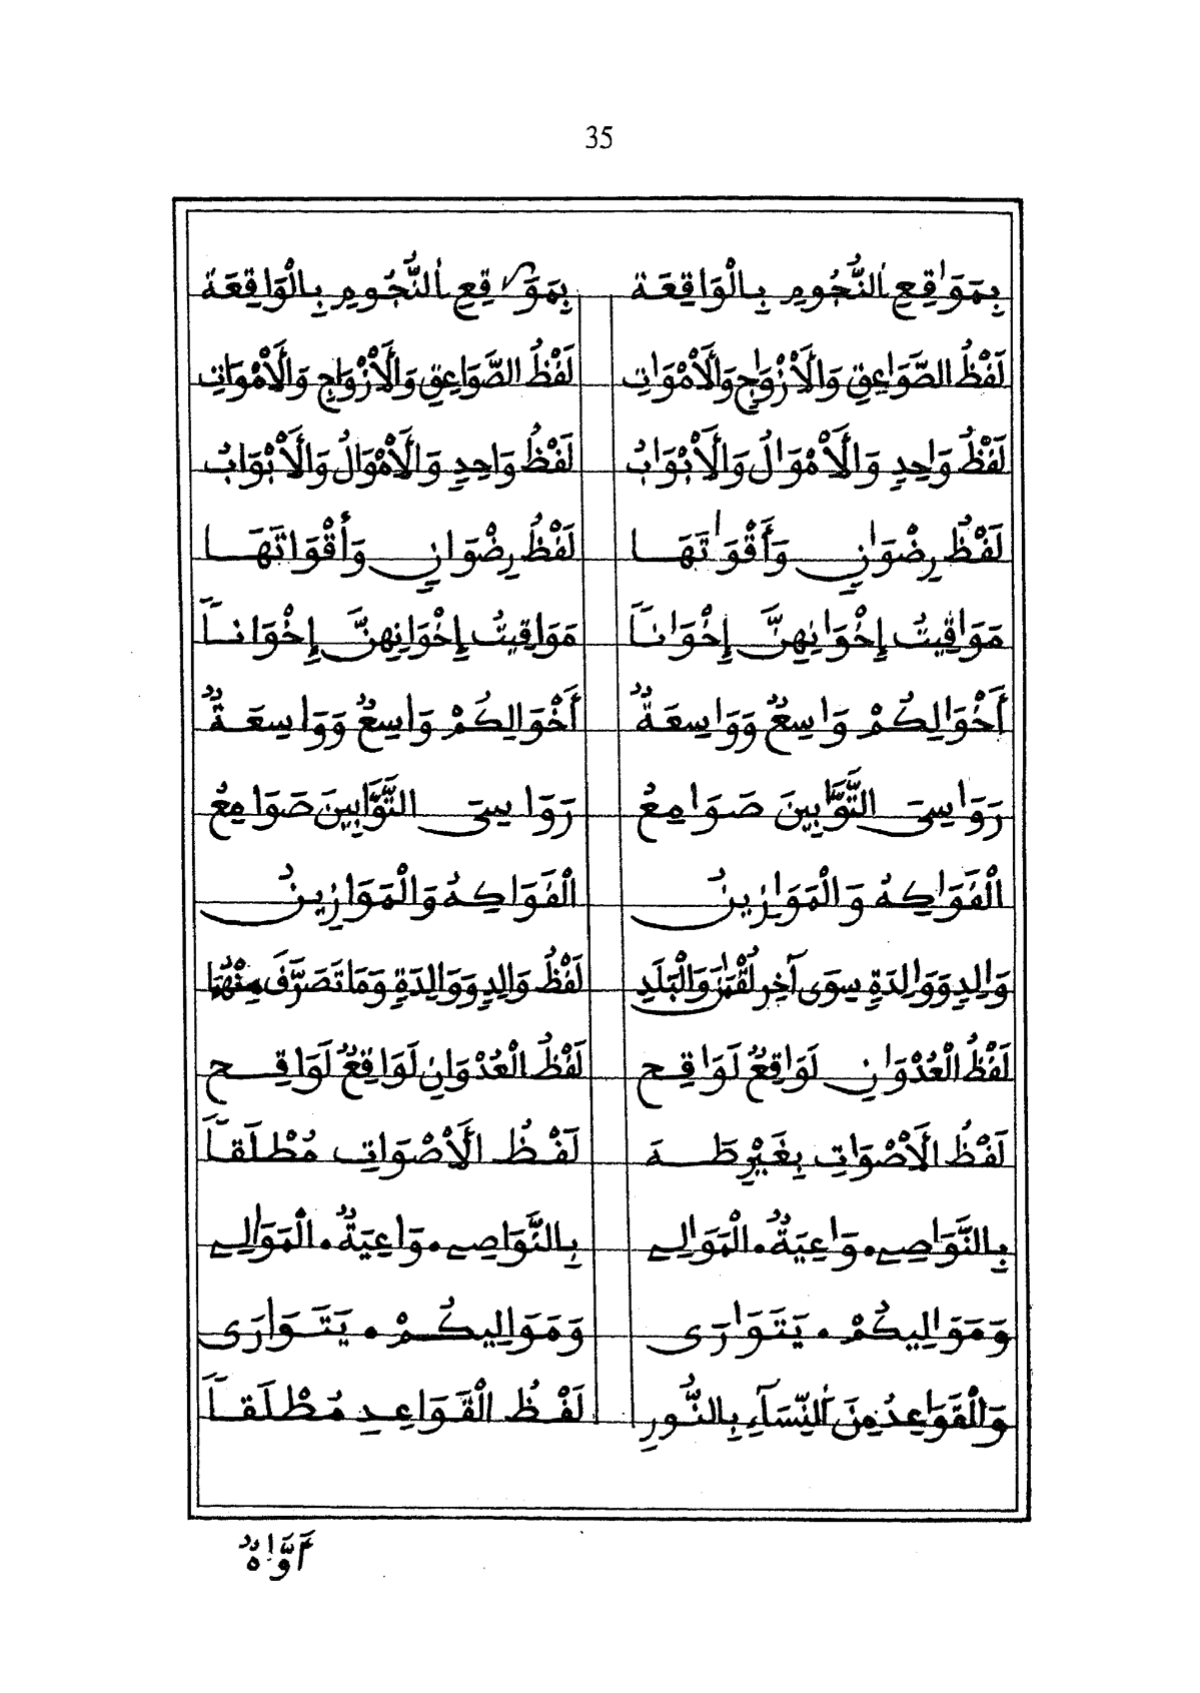 35
بِمَوَاقِعِ النُّجُومِ بِالْوَاقِعَة بِمَوَقِعِ النُّجُومِ بِالْوَاقِعَة
لَفْظُ الصَّوَاعِقِ وَالَأَزْوَاجِ وَالَأَمْوَاتِ لَفْظُ الصَّوَاعِقِ وَالَأَزْوَاجِ وَالَأَمْوَاتِ
لَفْظُ وَاحِدٍ وَالَأَمْوَالُ وَالَأَبْوَابُ لَفْظُ وَاحِدٍ وَالَأَمْوَالُ وَالَأَبْوَابُ
لَفْظُ رِضْوَانٍ وَأَقْوَاتَهَا لَفْظُ رِضْوَانٍ وَأَقْوَاتَهَا
مَوَاقِيتُ إِخْوَانِهِنَّ إِخْوَاناً مَوَاقِيتُ إِخْوَانِهِنَّ إِخْوَاناً
أَخْوَالِكُمْ وَاسِعٌ وَوَاسِعَةٌ أَخْوَالِكُمْ وَاسِعٌ وَوَاسِعَةٌ
رَوَاسِىَ التَّوَّابِينَ صَوَامِعُ رَوَاسِىَ التَّوَّابِينَ صَوَامِعُ
الْفَوَاكِهُ وَالْمَوَازِينُ الْفَوَاكِهُ وَالْمَوَازِينُ
وَالِدٍ وَوَالِدَةٍ سِوَى آخِرِ لُقْمَٰنَ وَالْبَلَدِ لَفْظُ وَالِدٍ وَوَالِدَةٍ وَمَا تَصَرَّفَ مِنْهُمَا
لَفْظُ الْعُدْوَانِ لَوَاقِعٌ لَوَاقِحَ لَفْظُ الْعُدْوَانِ لَوَاقِعٌ لَوَاقِحَ
لَفْظُ الَأَصْوَاتِ بِغَيْرِ طَهَ لَفْظُ الَأَصْوَاتِ مُطْلَقاً
بِالنَّوَاصِے • وَاعِيَةٌ • الْمَوَالِے بِالنَّوَاصِے • وَاعِيَةٌ • الْمَوَالِے
وَمَوَالِيكُمْ • يَتَوَارَى وَمَوَالِيكُمْ • يَتَوَارَى
وَالْقَوَاعِدُ مِنَ النِّسَآءِ بِالنُّورِ لَفْظُ الْقَوَاعِدِ مُطْلَقاً
أَوَّاهٌ